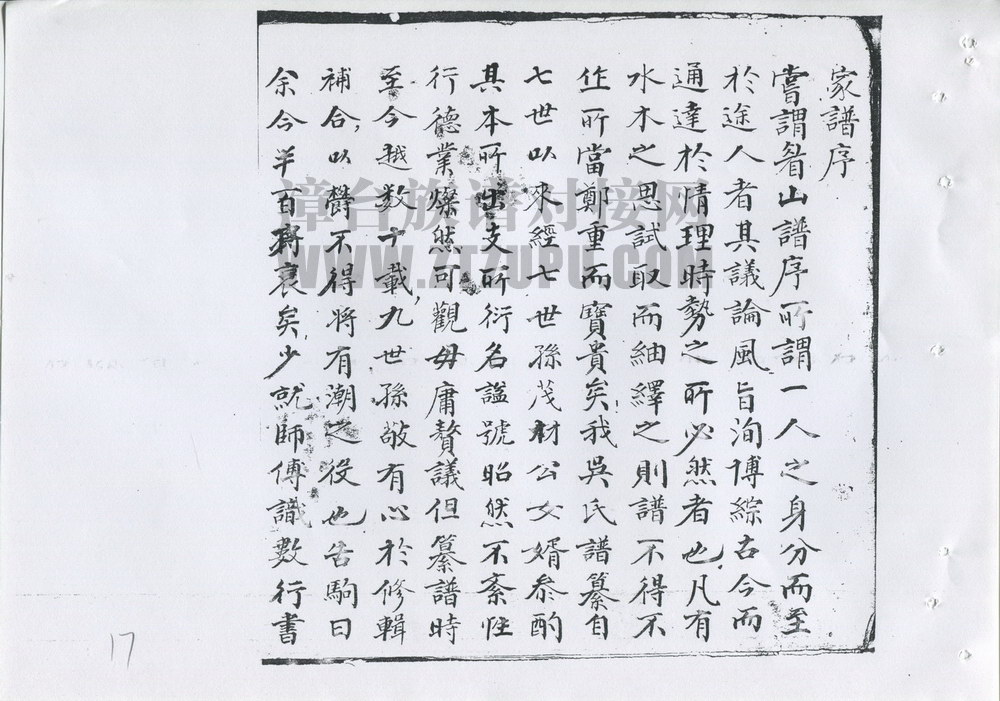 家譜序
嘗謂眉山譜序所謂一人之身分而至
於途人者其議論風旨洵博綜古今而
通達於情理時勢之所必然者也凡有
水木之思試取而紬繹之則譜不得不
作所當鄭重而寶貴矣我吳氏譜纂自
七世以來經七世孫茂材公女婿參酌
其本所出支所衍名謚號昭然不紊性
行德業燦然可觀毋庸贅議但纂譜時
至今越數十載九世孫敬有心於修輯
補合以欝不得將有潮之役也告駒曰
余今半百將衰矣少就師傅識數行書
漳台族谱对接网
WWW.ZTZUPU.COM
17